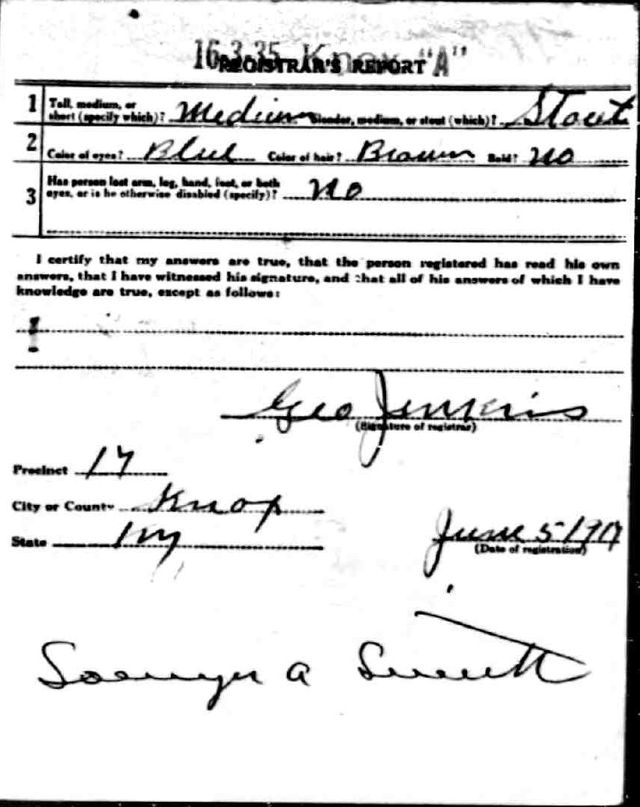 16-3-35 Knox "A"
REGISTRAR'S REPORT
1 Tall, medium, or short (specify which)? Medium Slender, medium, or stout (which)? Stout
2 Color of eyes? Blue Color of hair? Brown Bald? No
3 Has person lost arm, leg, hand, foot, or both
eyes, or is he otherwise disabled (specify)? No
I certify that my answers are true, that the person registered has read his own
answers, that I have witnessed his signature, and that all of his answers of which I have
knowledge are true, except as follows:
Geo Jenkins
(Signature of registrar)
Precinct 17
City or County Knox
State Ky
June 5 1917
(Date of registration)
A Smith